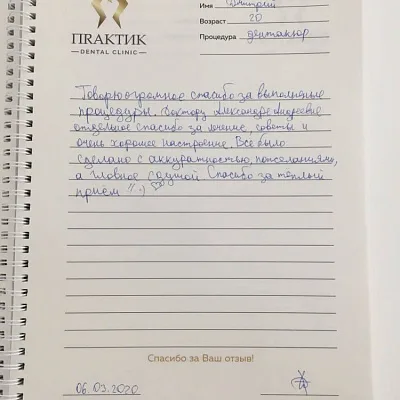 Имя Дмитрий
Возраст 20
Процедура
ПRАКТИК
DENTAL CLINIC
Говорю огромное спасибо за выполненые
процедуры. Доктору Александре Андреевне
отдельное спасибо за лечение, советы и
очень хорошее настроение. Всё было
сделано с аккуратностью,
а главное с душой. Спасибо за тёплый
приём!! :) ♡
Спасибо за Ваш отзыв!
06.03.2020